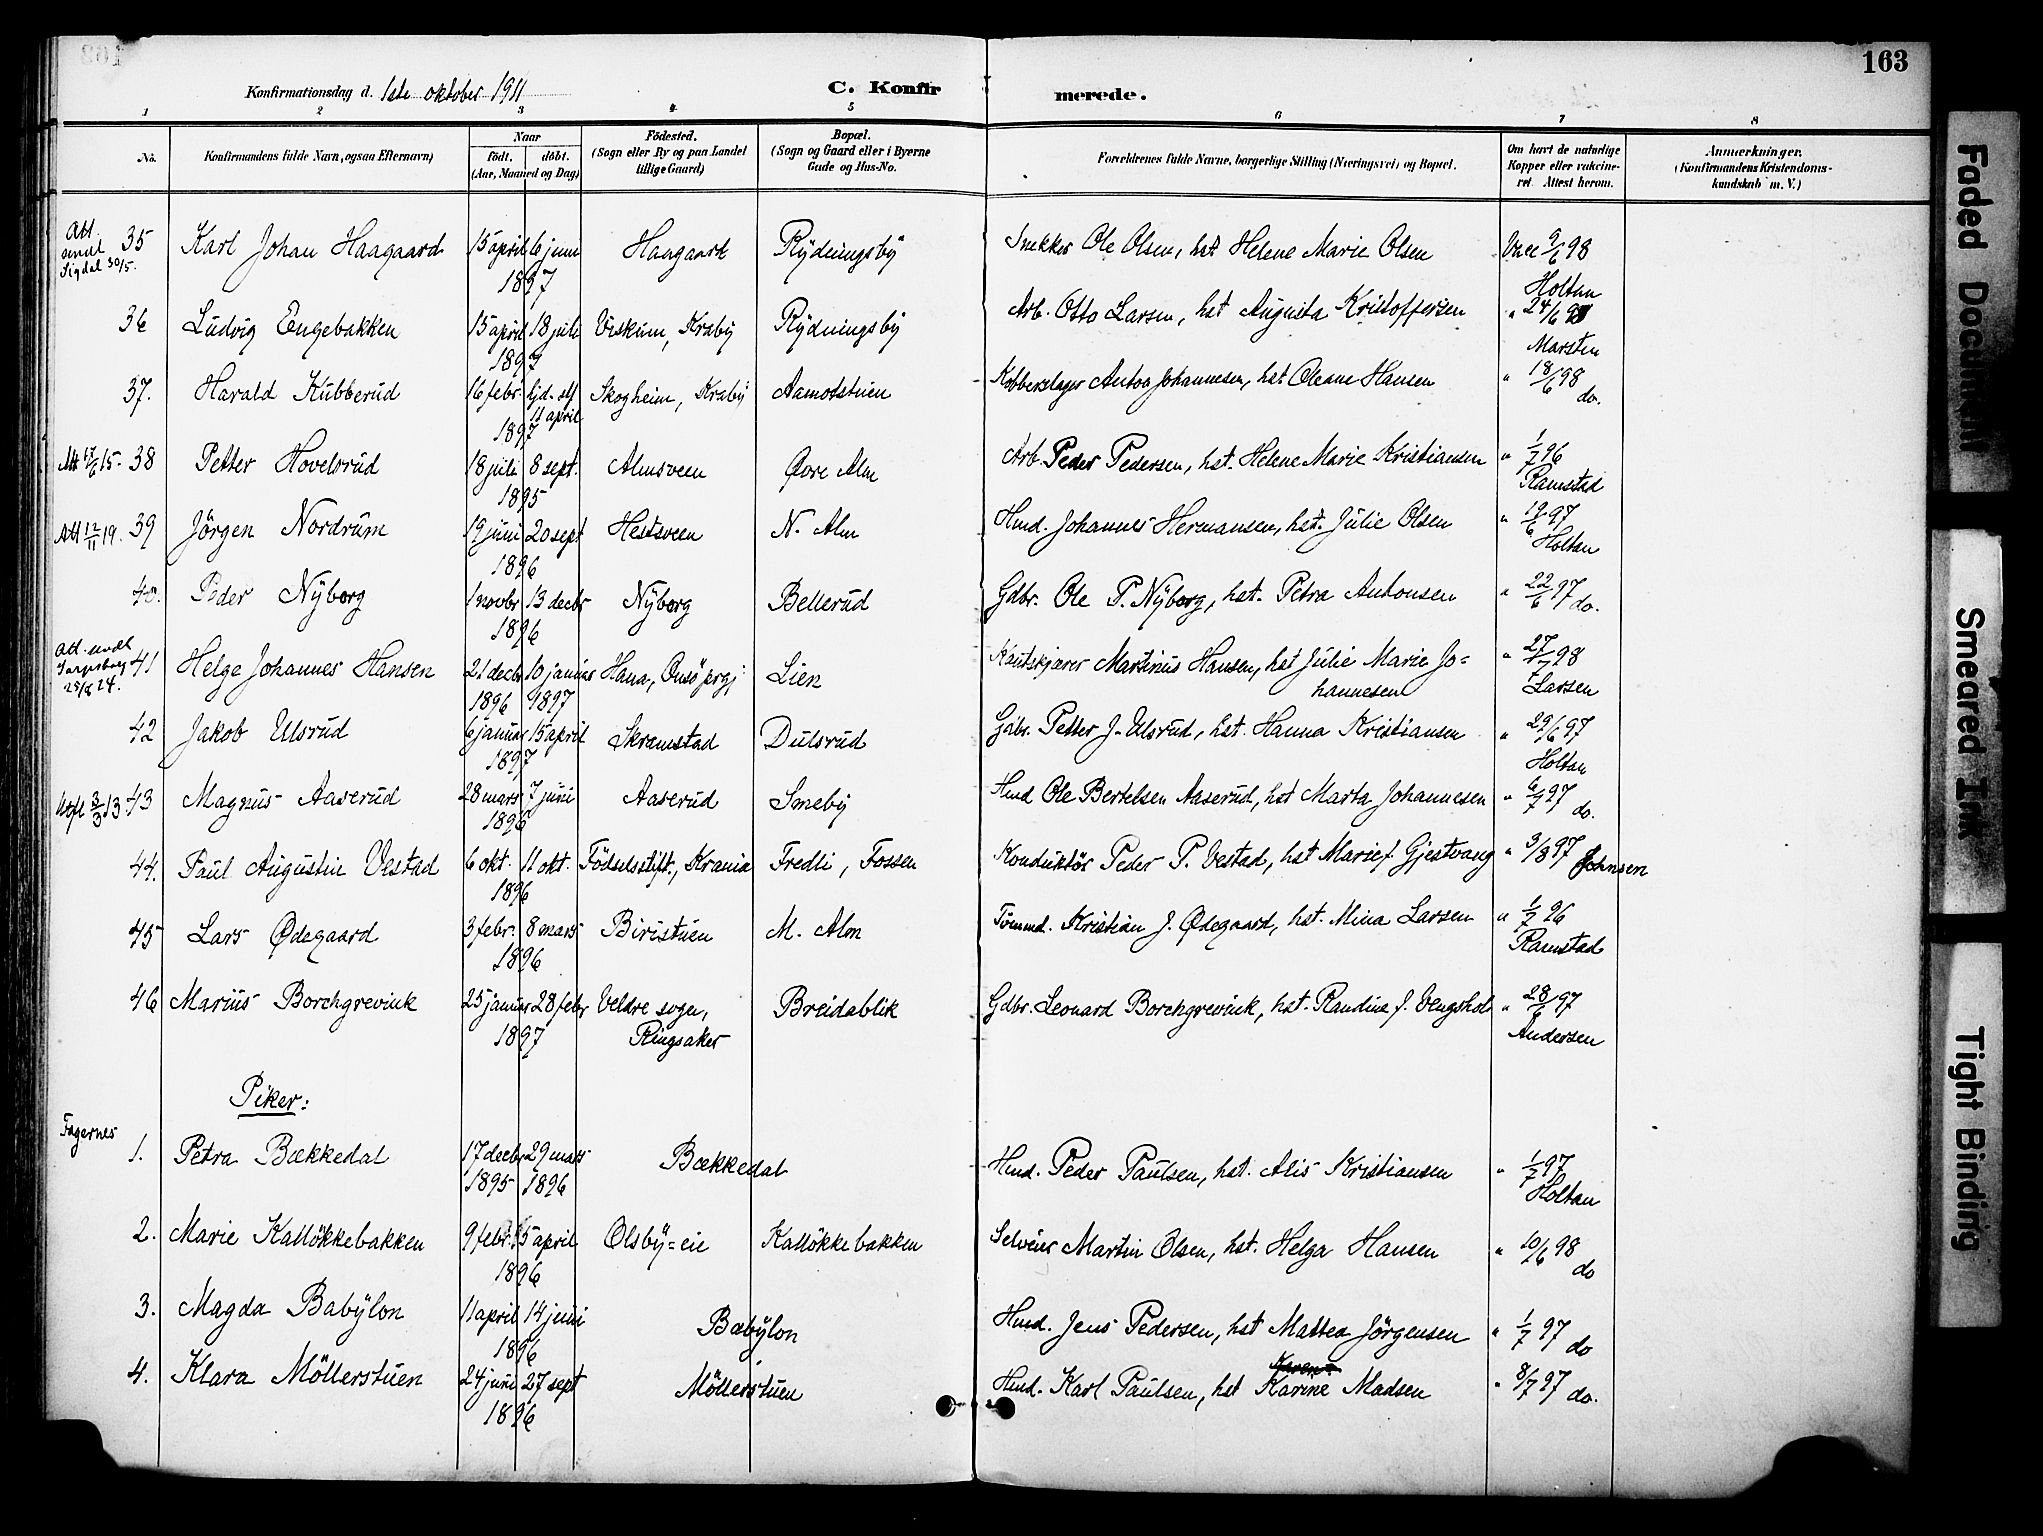 163
Konfirmationsdag d. 1ste oktober 1911 C. Konfir merede.
1 2 3 4 5 6 7 8
No. Konfirmandens fulde Navn, ogsaa Efternavn) Naar födt. döbt. (Aar, Maaned og Dag) Födested. (Sogn eller By og paa Landet tillige Gaard) Bopæl. (Sogn og Gaard eller i Byerne Gade og Hus-No. Forældrenes fulde Navne, borgerlige Stilling (Næringsvei) og Bopæl. Om havt de naturlige Kopper eller vakcineret. Attest herom. Anmærkninger. (Konfirmandens Kristendomskundskab m. V.)
Att. sendt Sigdal 30/5. 35 Karl Johan Haagaard 15 april 6 juni 1897 Haagaard Rydningsby Snekker Ole Olsen, hst Helene Marie Olsen Vacc 9/6 98 Holtan
36 Ludvig Engebakken 15 april 18 juli 1897 Viskum, Kraby Rydningsby Arb. Otto Larsen, hst Augusta Kristoffersen " 24/6 98 Marsten
37. Harald Kubberud 16 febr. hjd. stf 11 april 1897 Skogheim, Kraby Aamotstuen Kobberslager Anton Johannesen, hst Oleane Hansen " 18/6 98 do.
Att 17/6 15. 38 Petter Hovelsrud 18 juli 8 sept. 1895 Almsveen Øvre Alm Arb. Peder Pedersen, hst. Helene Marie Kristiansen " 1/7 96 Ramstad
Att 12/11 19. 39 Jörgen Nordrum 19 juni 20 sept 1896 Hestsveen N. Alm Hmd. Johannes Hermansen, hst. Julie Olsen " 19/6 97 Holtan
40. Peder Nyborg 1 novbr 13 decbr 1896 Nyborg Bellerud Gdbr. Ole P. Nyborg, hst. Petra Antonsen " 22/6 97 do.
Att. sendt Sarpsborg 25/8 24. 41 Helge Johannes Hansen 21 decbr 1896 10 januar 1897 Hana, Onsö prgj. Lien Kautskjærer Martinus Hansen, hst Julie Marie Jo=
hannesen " 27/7 98 Larsen
42 Jakob Ulsrud 6 januar 15 april 1897 Skramstad Dulsrud Gdbr. Petter J. Ulsrud, hst. Hanna Kristiansen " 29/6 97 Holtan
Kopf 3/3 13 43 Magnus Aaserud 28 mars 7 juni 1896 Aaserud Smeby Hmd Ole Bertelsen Aaserud, hst Marta Johannesen " 6/7 97 do.
44. Paul Augustin Vestad 6 okt. 11 okt. 1896 Födselsstift., Krania Fredli, Fossen Konduktör Peder P. Vestad, hst Marie f. Gjestvang " 3/8 97 Johnsen
45 Lars Ødegaard 3 febr. 8 mars 1896 Biristuen M. Alm Tömmd. Kristian J. Ødegaard, hst. Mina Larsen " 1/7 96 Ramstad
46 Marius Borchgrevink 25 januar 28 febr 1897 Veldre sogn, Ringsaker Breidablik Gdbr. Leonard Borchgrevink, hst. Randine f. Vengshol " 28/6 97 Andersen
Piker:
Fagernes 1. Petra Bækkedal 17 decbr 1895 29 mars 1896 Bækkedal Hmd. Peder Paulsen, hst. Alis Kristiansen " 1/7 97 Holtan
2. Marie Kallökkebakken 9 febr. 5 april 1896 Olsby=eie Kallökkebakken Selveier Martin Olsen, hst. Helga Hansen " 10/6 98 do
3. Magda Babylon 11 april 14 juni 1896 Babylon Hmd. Jens Pedersen, hst Mattea Jörgensen " 1/7 97 do
4. Klara Möllerstuen 24 juni 27 sept 1896 Möllerstuen Hmd. Karl Paulsen, hst Karine Madsen " 8/7 97 do.
Faded Document
Smeared Ink
Tight Binding